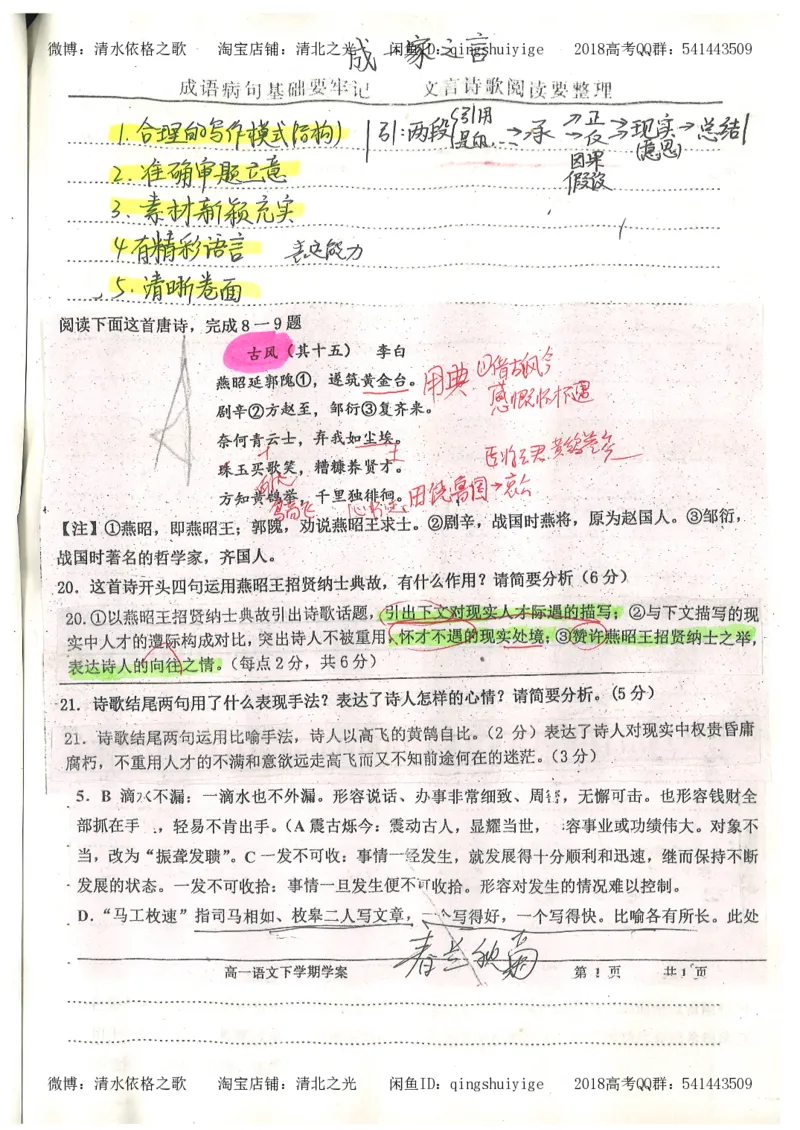 微博：清水依格之歌 淘宝店铺：清北之光 闲鱼ID：qingshuiyige 2018高考QQ群：541443509
成一家之言
成语病句基础要牢记 文言诗歌阅读要整理
1.合理的写作模式(结构) 引：两段 引用 → 承 → 正 反 → 现实 → 总结
因果 假设
2.准确审题立意
3.素材新颖充实
4有精彩语言 表达能力
5.清晰卷面
阅读下面这首唐诗，完成8－9题
古风（其十五） 李白
燕昭延郭隗①，遂筑黄金台。 用典 借古讽今
剧辛②方赵至，邹衍③复齐来。 感慨怀才不遇
奈何青云士，弃我如尘埃。
珠玉买歌笑，糟糠养贤才。
方知黄鹄举，千里独徘徊。
【注】①燕昭，即燕昭王；郭隗，劝说燕昭王求士。②剧辛，战国时燕将，原为赵国人。③邹衍，
战国时著名的哲学家，齐国人。
20．这首诗开头四句运用燕昭王招贤纳士典故，有什么作用？请简要分析（6分）
20.①以燕昭王招贤纳士典故引出诗歌话题，引出下文对现实人才际遇的描写；②与下文描写的现
实中人才的遭际构成对比，突出诗人不被重用、怀才不遇的现实处境；③赞许燕昭王招贤纳士之举，
表达诗人的向往之情。（每点2分，共6分）
21．诗歌结尾两句用了什么表现手法？表达了诗人怎样的心情？请简要分析。（5分）
21．诗歌结尾两句运用比喻手法，诗人以高飞的黄鹄自比。（2 分）表达了诗人对现实中权贵昏庸
腐朽，不重用人才的不满和意欲远走高飞而又不知前途何在的迷茫。（3分）
5．B 滴水不漏：一滴水也不外漏。形容说话、办事非常细致、周密，无懈可击。也形容钱财全
部抓在手 ，轻易不肯出手。（A 震古烁今：震动古人，显耀当世， 容事业或功绩伟大。对象不
当，改为“振聋发聩”。C 一发不可收：事情一经发生，就发展得十分顺利和迅速，继而保持不断
发展的状态。一发不可收拾：事情一旦发生便不可收拾。形容对发生的情况难以控制。
D．“马工枚速”指司马相如、枚皋二人写文章，一个写得好，一个写得快。比喻各有所长。此处
春兰秋菊
高一语文下学期学案 第 1 页 共 1 页
微博：清水依格之歌 淘宝店铺：清北之光 闲鱼ID：qingshuiyige 2018高考QQ群：541443509